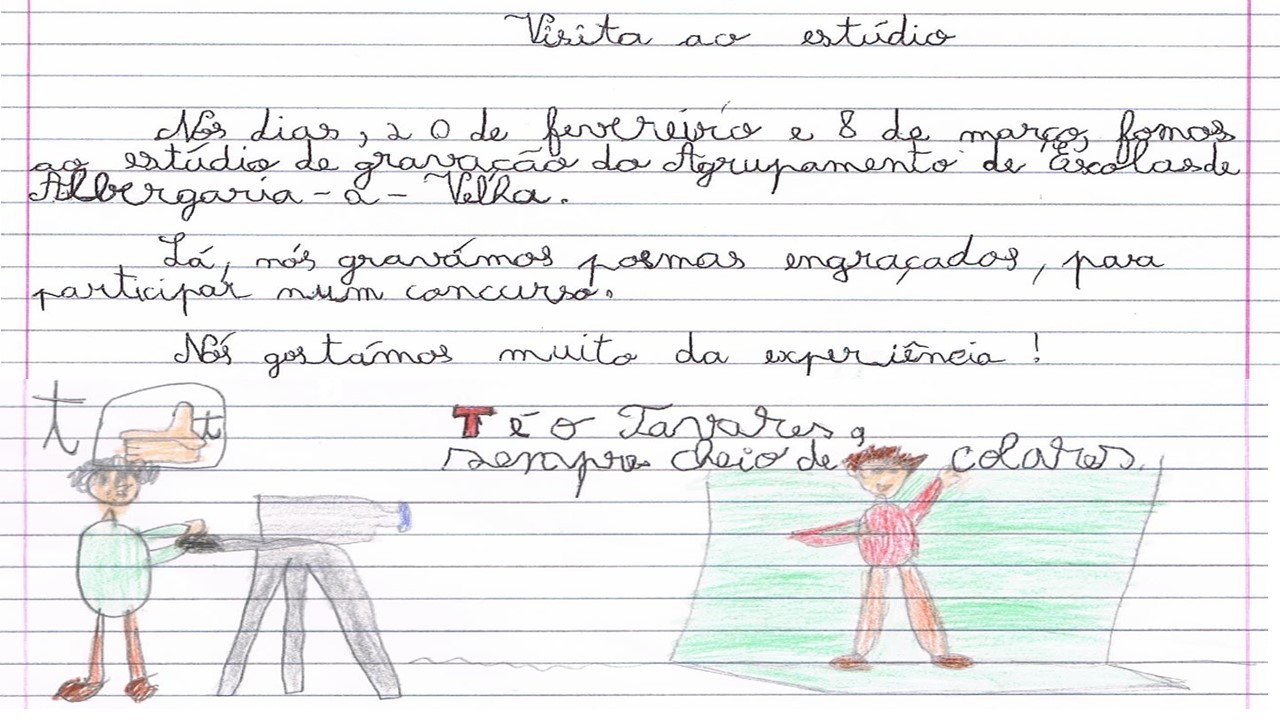 Visita ao estúdio
Nos dias, 20 de fevereiro e 8 de março, fomos
ao estúdio de gravação do Agrupamento de Escolas de
Albergaria-a-Velha.
Lá, nós gravámos poemas engraçados, para
participar num concurso.
Nós gostámos muito da experiência!
t
t
T é o Tavares,
sempre cheio de colares